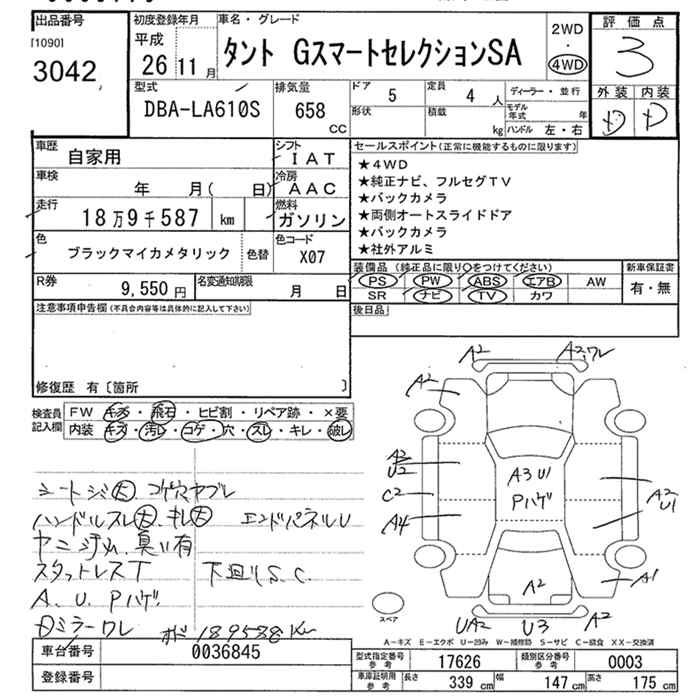 出品番号
[1090]
3042
初度登録年月
平成
26 11月
車名・グレード
タント GスマートセレクションSA
2WD
・
4WD
評価点
3
外装 内装
D D
型式
DBA-LA610S
排気量
658
CC
ドア
5
定員
4
人
形状
積載
kg
ディーラー・並行
モデル年式
年
ハンドル 左・右
車歴
自家用
シフト
IAT
車検
年 月( 日)
冷房
AAC
走行
18万9千587 km
燃料
ガソリン
色
ブラックマイカメタリック
色替
色コード
X07
R券
9,550 円
名変通知期限
月 日
セールスポイント(正常に機能するものに限ります)
★4WD
★純正ナビ、フルセグTV
★バックカメラ
★両側オートスライドドア
★バックカメラ
★社外アルミ
装備品(純正品に限り○をつけてください)
PS PW ABS エアB AW
SR ナビ TV カワ
新車保証書
有・無
後日品
注意事項申告欄(不具合内容等は具体的に記入して下さい)
修復歴 有〔箇所 〕
検査員
記入欄
FW キズ・飛石・ヒビ割・リペア跡・×要
内装 キズ・汚レ・コゲ・穴・スレ・キレ・破レ
シートシミ大 コゲ穴ヤブレ
ハンドルスレ大、キレ大 エンドパネルU
ヤニ汚れ、臭い有
スタットレスT 下廻りS.C.
A、U、Pハゲ
Dミラーワレ
189588Km
A2 A2,ワレ
A2
A2
U2
C2
A4
A3 U1
Pハゲ
A2
U1
A1
A2
UA2 U3 A2
スペア
A-キズ E-エクボ U-凹み W-補修跡 S-サビ C-腐食 XX-交換済
車台番号
0036845
登録番号
型式指定番号
参考
17626
類別区分番号
参考
0003
車庫証明用
参考
長さ
339 cm
幅
147 cm
高さ
175 cm